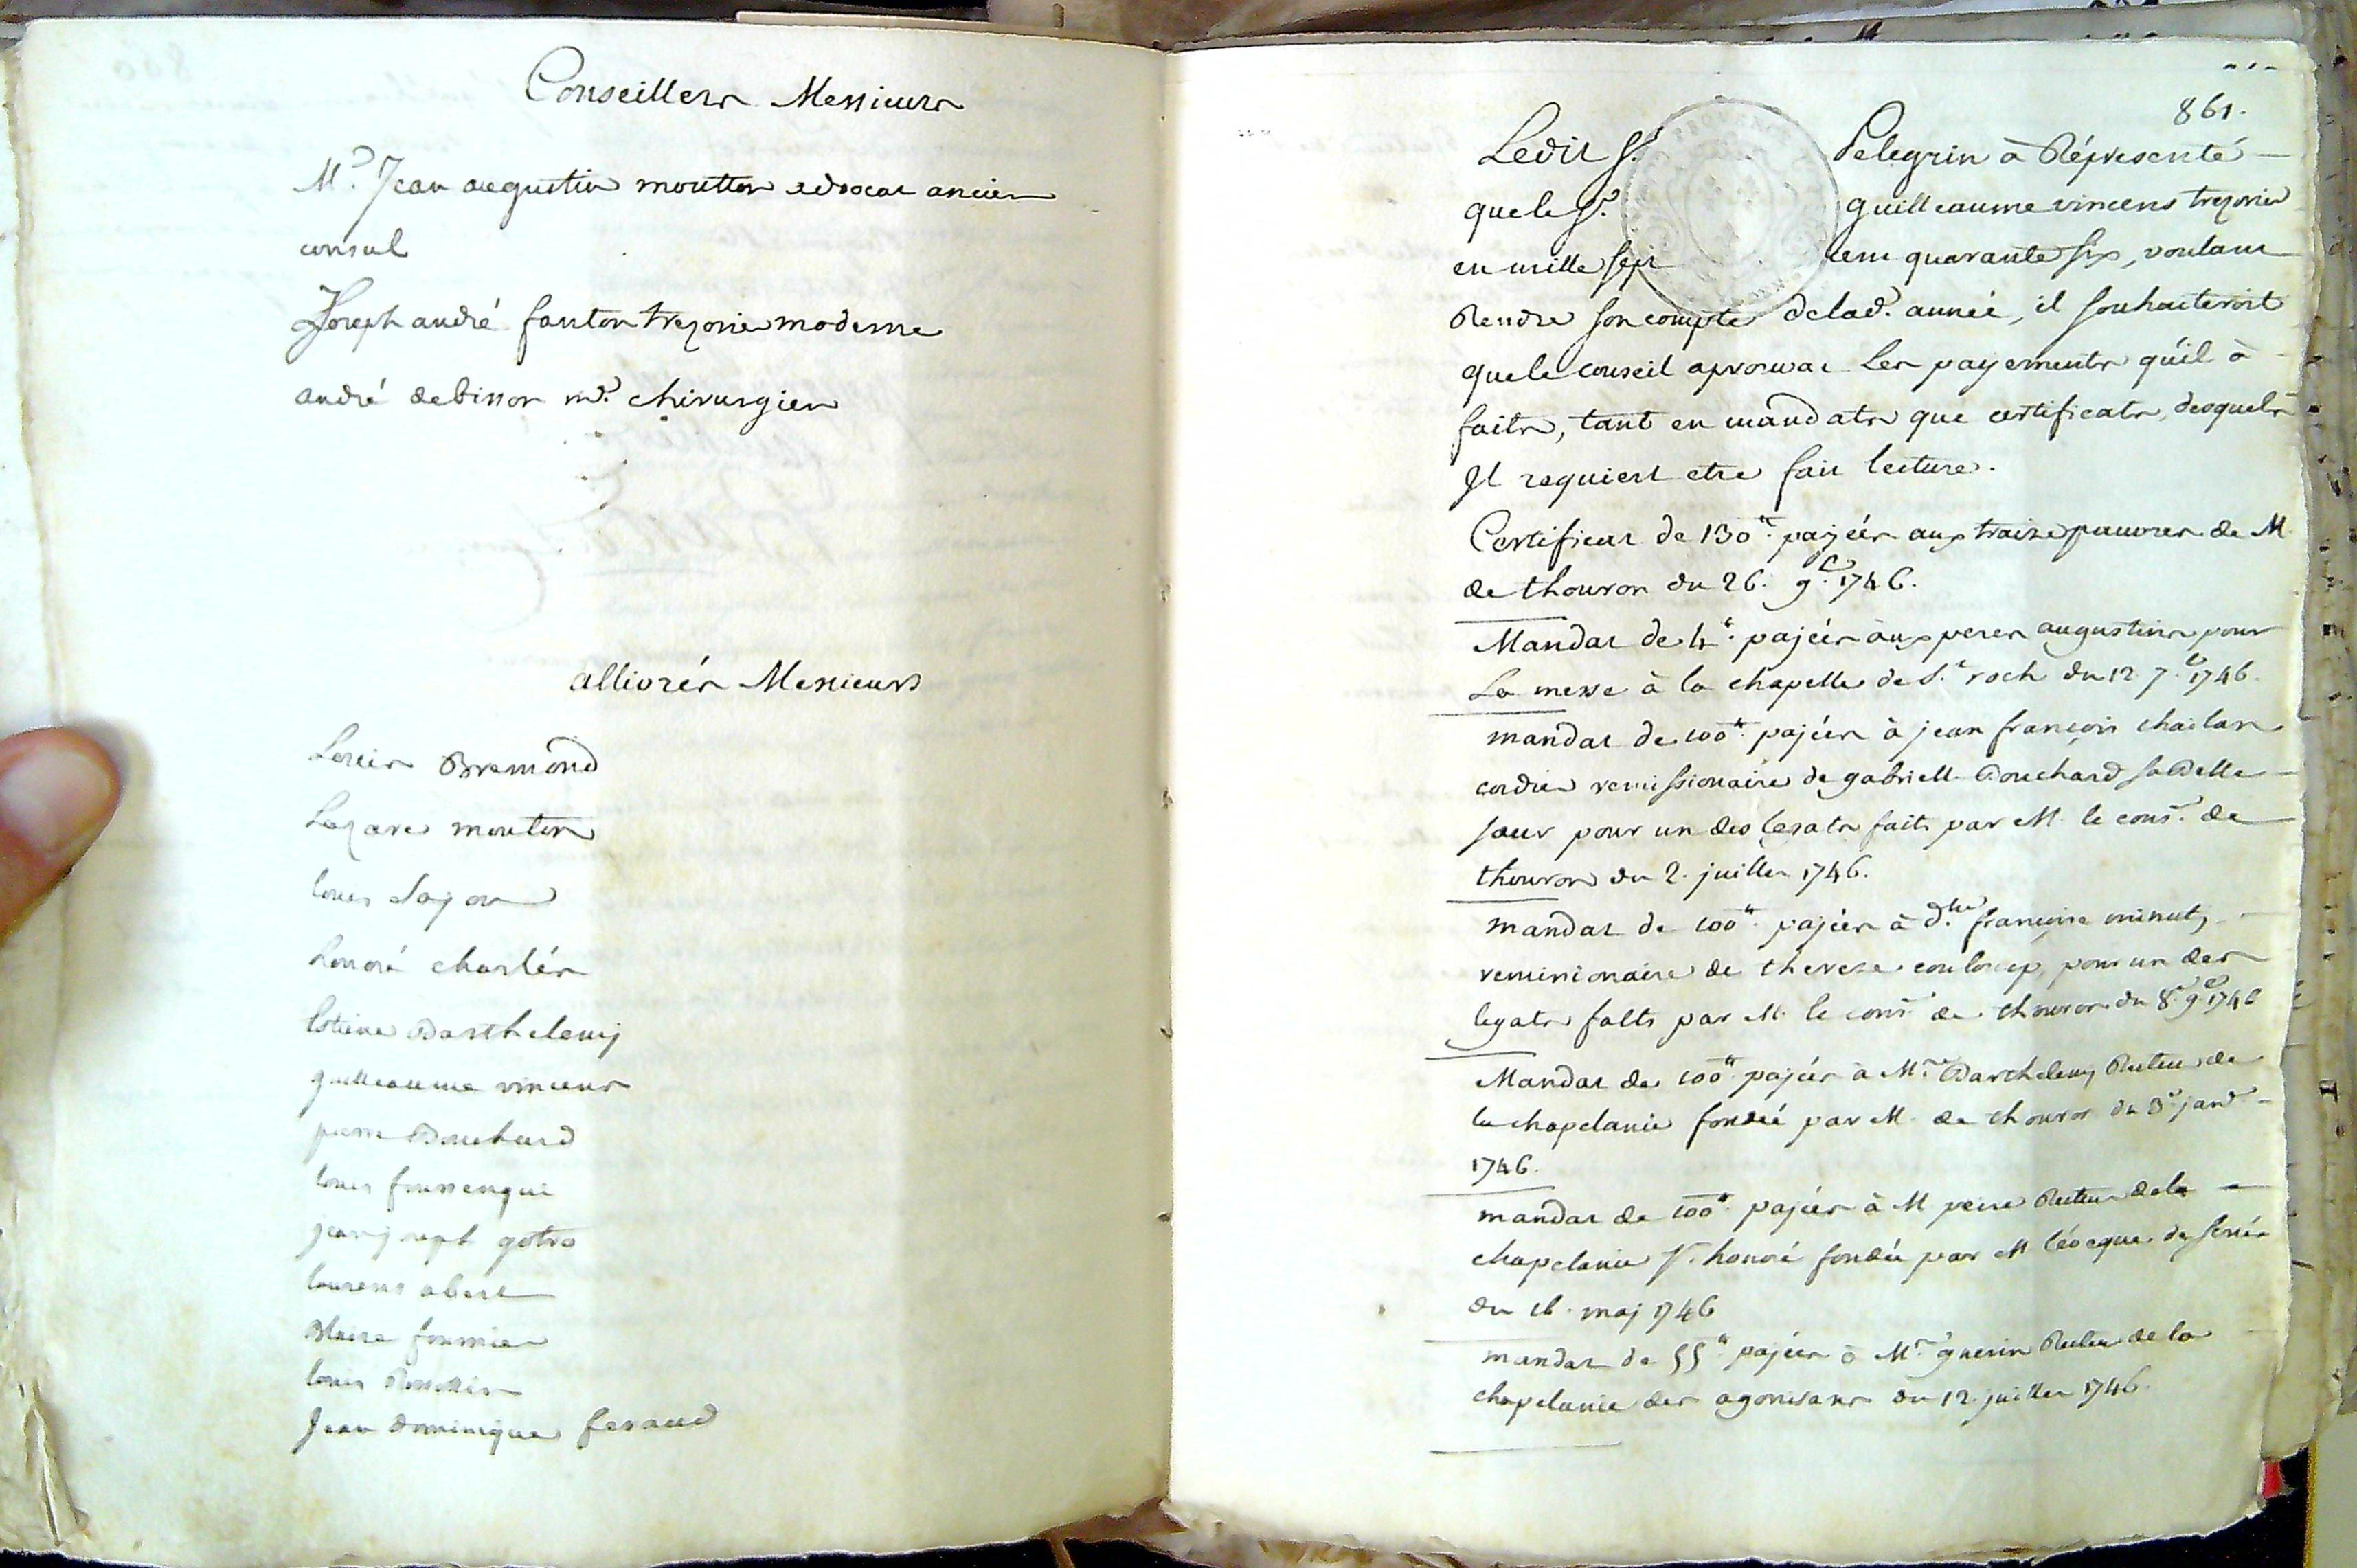 Conseillers Messieurs
Mr. Jean augustin moutton advocat ancien
consul
Joseph andré fanton trezorier moderne
andré debisson me. chirurgien
alliorés Messieurs
Louis Bremond
Lazare moutton
louis
honoré charlés
Estiene Barthelemy
guilleaume vincens
pierre Bouchard
louis foussenqui
jean joseph
laurens abert
Blaise fournier
louis
Jean dominique feraud
861.
Ledit Sr. Pelegrin à Répresenté
que le Sr. guilleaume vincens trezorier
en mille sept cent quarante six, voulant
Rendre son compte de lad. année, il souhaiteroit
que le conseil aprouvat Les payements qu'il à
faits, tant en mandats que certificats, desquels
Il requiert etre fait lecture.
Certificat de 130tt. payées aux traize pauvres de M.
de thouron du 26. 9e. 1746.
Mandat de 4tt. pajées aux peres augustins pour
La messe à la chapelle de St. roch du 12. 7e. 1746.
mandat de 100tt. pajées à jean françois chailan
cordier remissionaire de gabrielle Bouchard sa Belle
soeur pour un des legats faits par M. le cons. de
thouron du 2. juillet 1746.
mandat de 100tt. pajées à dlle. françoise minuty
remissionaire de therese pour un des
legats faits par M. le cons. de thouron du 8. 9e. 1746
Mandat de 100tt. pajées à Mre. Barthelemy Recteur de
la chapelanie fondée par M. de thouron du 3. janv.
1746.
mandat de 100tt. pajées à M. peire Recteur de la
chapelanie St. honoré fondée par M. l'éveque de senés
du 16. maj 1746
mandat de 55tt. pajées à Mre. guerin Recteur de la
chapelanie des agonisans du 12. juillet 1746.